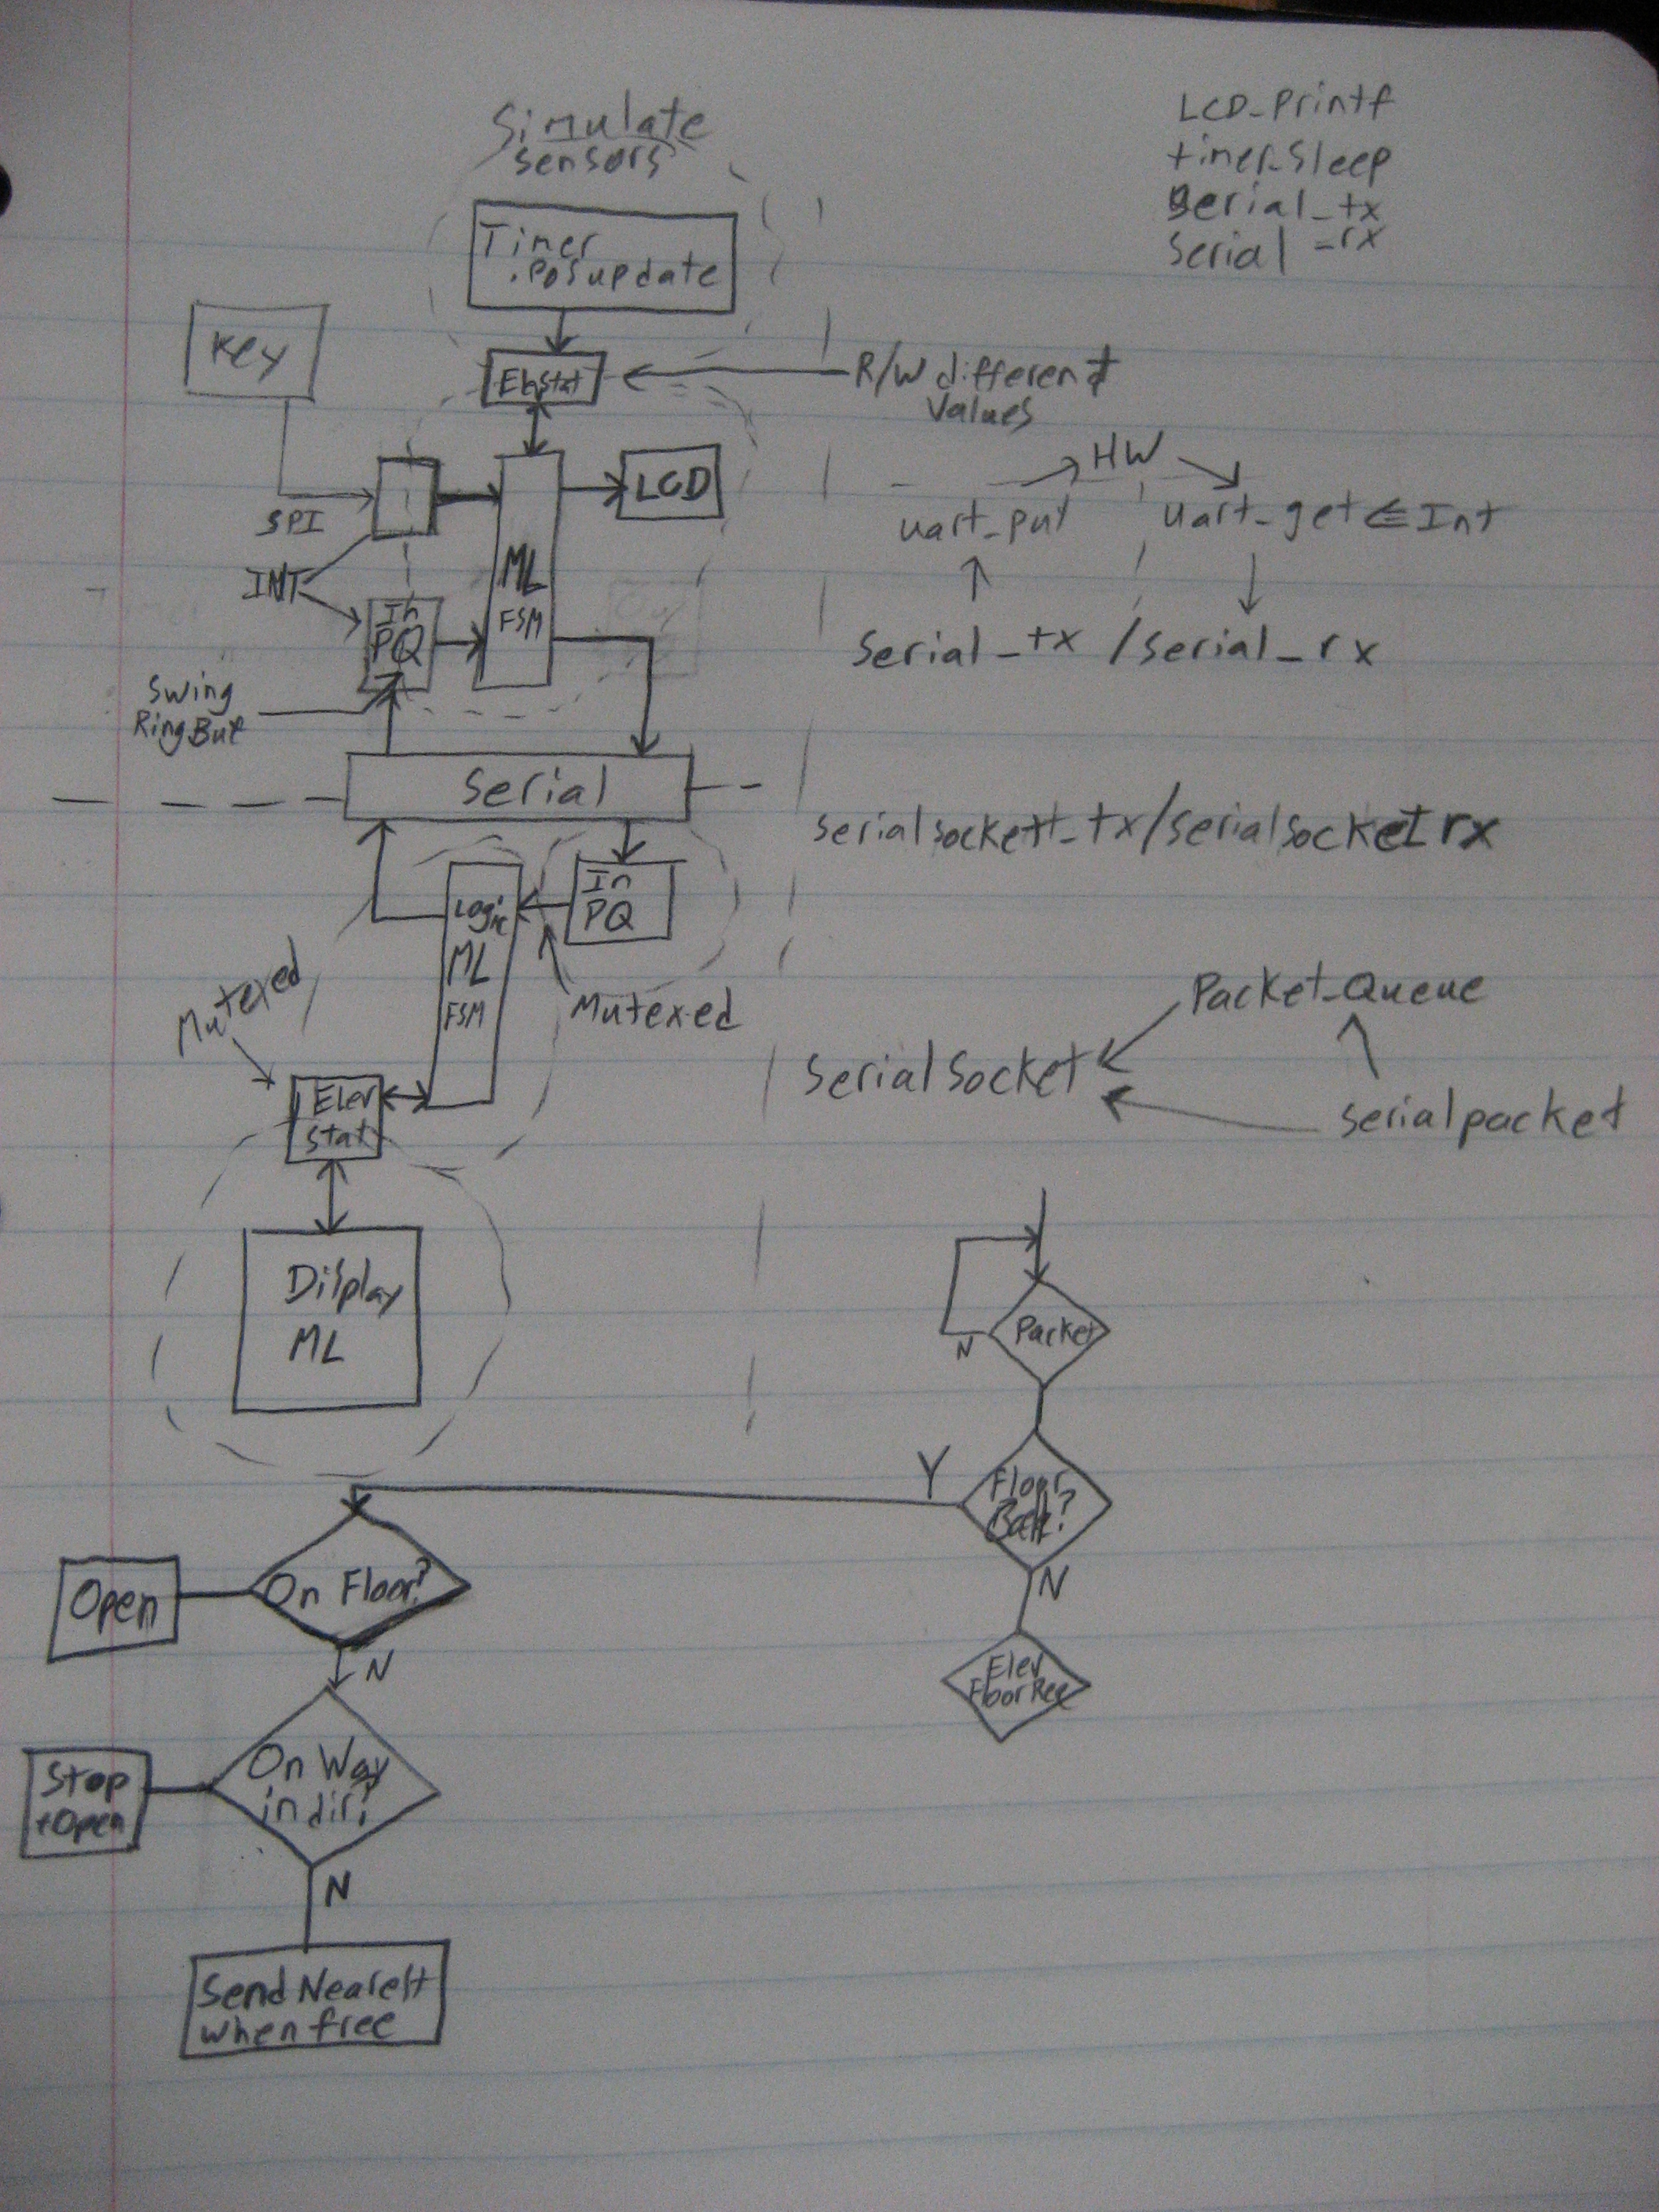 Simulate
sensors
LCD_Printf
timer_Sleep
Serial_tx
Serial_rx
Timer
.Posupdate
Key
ElvStat
R/W different
Values
SPI
LCD
HW
uart_put
uart_get ⇐ Int
INT
In
PQ
ML
FSM
Serial_tx / Serial_rx
Swing
RingBuf
Serial
serialsocket_tx/serialsocket rx
In
PQ
Logic
ML
FSM
Mutexed
Mutexed
Packet_Queue
SerialSocket
serialpacket
Elev
Stat
Display
ML
Packet
N
Y
Floor
?
N
Open
On Floor?
N
Elev
Floor Req
Stop
+Open
On Way
in dir?
N
Send Nearest
when free